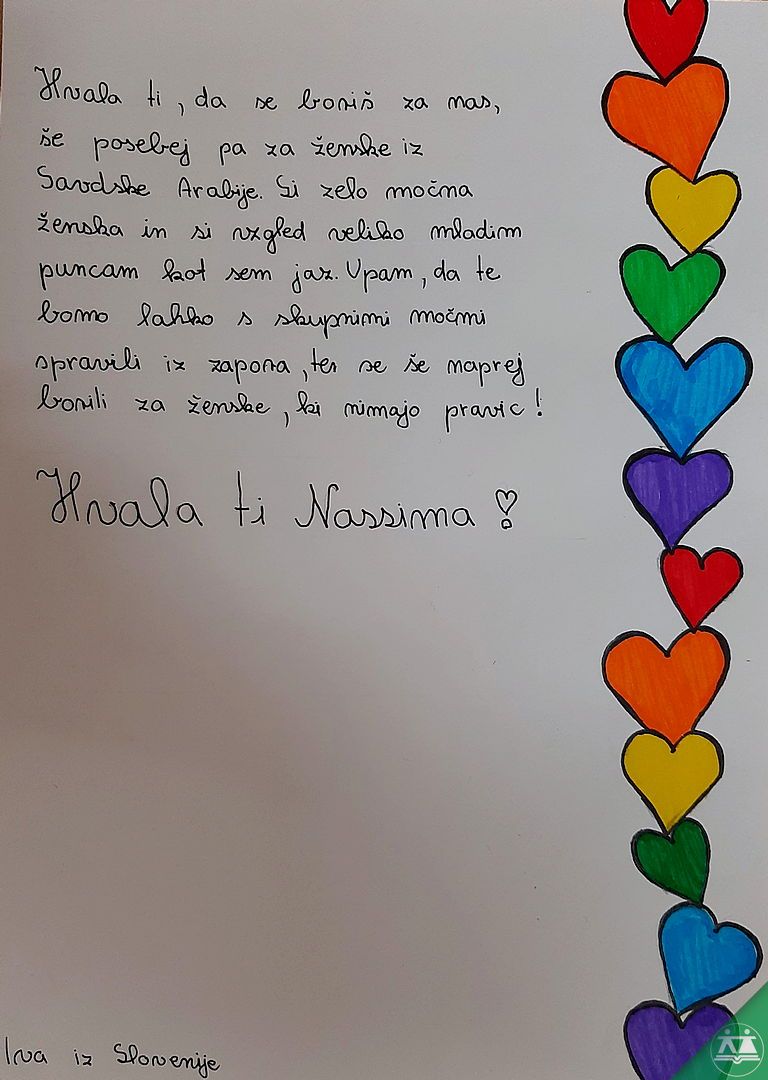 Hvala ti, da se boriš za nas,
še posebej pa za ženske iz
Savdske Arabije. Si zelo močna
ženska in si vzgled veliko mladim
puncam kot sem jaz. Upam, da te
bomo lahko s skupnimi močmi
spravili iz zapora, ter se še naprej
borili za ženske, ki nimajo pravic!
Hvala ti Nassima!
Iva iz Slovenije